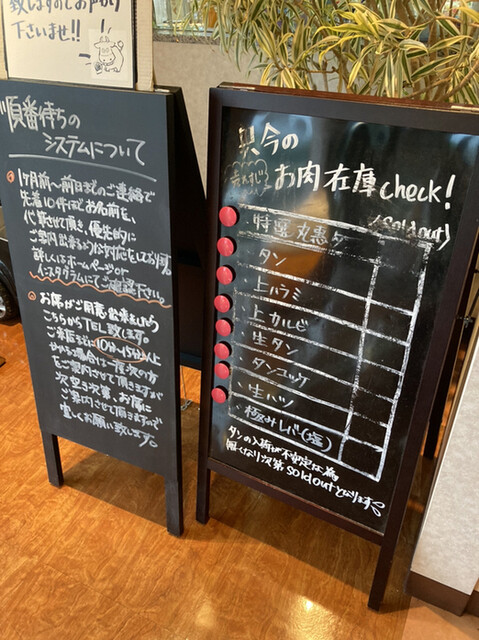 致しますのでお声掛け
下さいませ!!
順番待ちの
システムについて
1ヶ月前〜前日までのご連絡で
先着10件ほどお名前を
優先的に
ご案内出来るような対応をしております。
詳しくはホームページor
インスタグラムにてご確認下さい。
お席がご用意出来ましたら
こちらからTEL致します。
ご来店までに10分〜15分以上
かかる場合は一度次の方
をご案内させて頂きますが
次空き次第、お席に
ご案内させて頂きますので
宜しくお願い致します。
只今の
お肉在庫check!
(Sold out)
特選丸惠
・タン
・上ハラミ
・上カルビ
・生タン
・タンユッケ
・生ハツ
・極みレバ(塩)
タンの入荷が不安定な為
無くなり次第Sold outとなります。